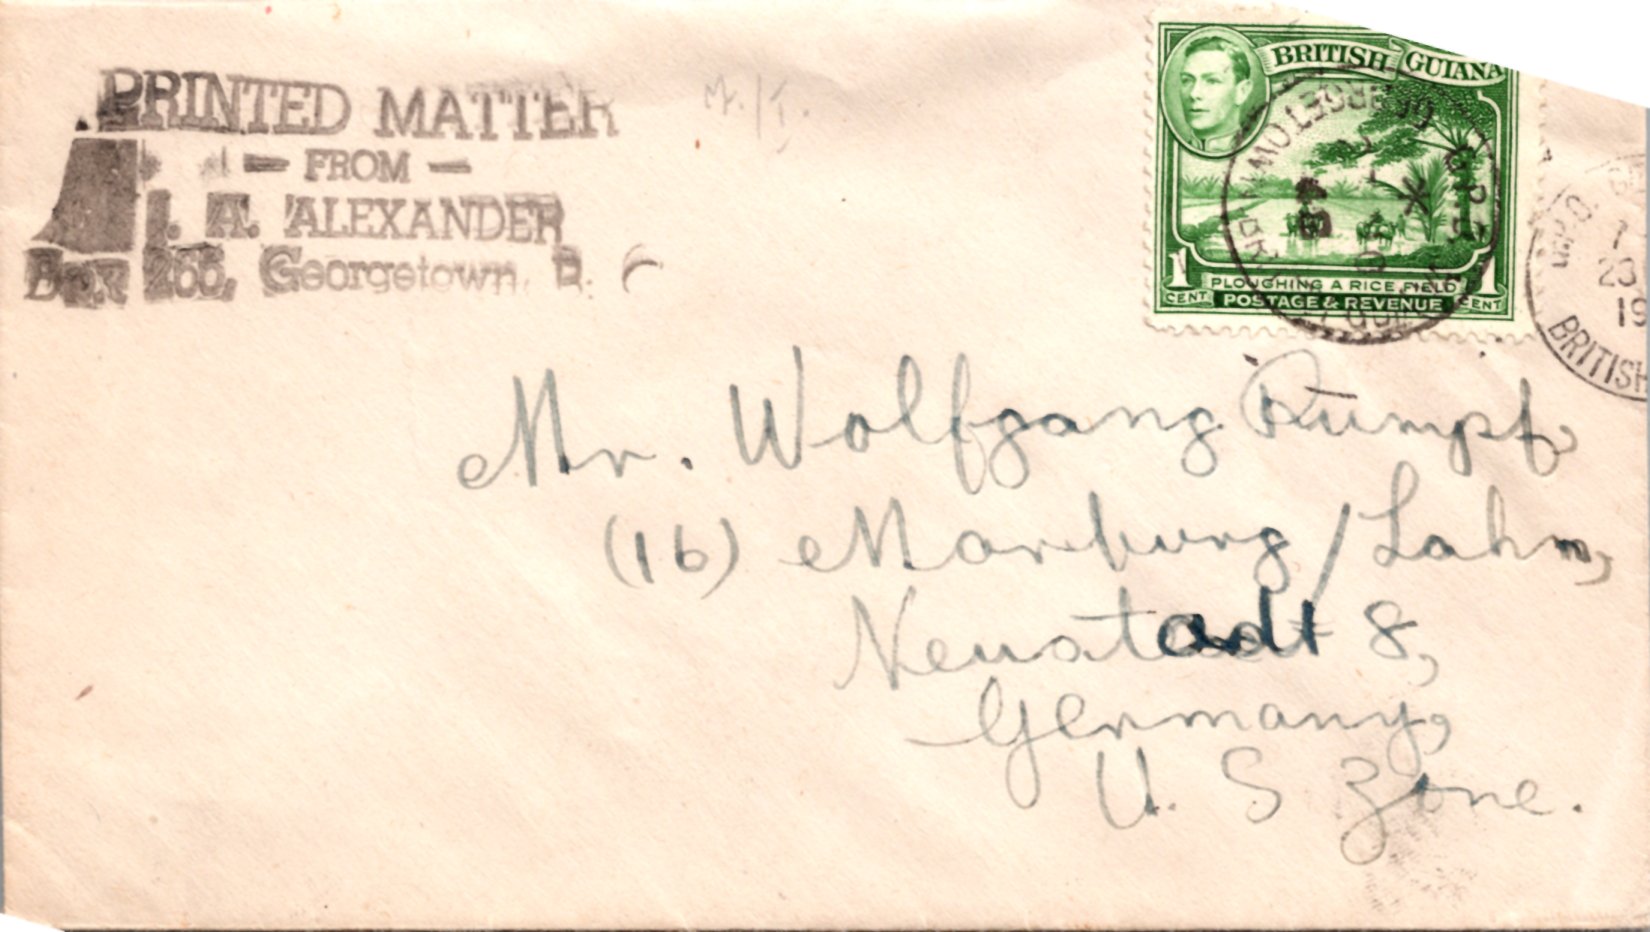 PRINTED MATTER
— FROM —
I. A. ALEXANDER
Box 266, Georgetown, B.
BRITISH GUIANA
1 CENT
PLOUGHING A RICE FIELD
1 CENT
POSTAGE & REVENUE
GEORGETOWN
G.P.O.
G.P.O.
23
19
BRITISH
Mr. Wolfgang Rumpf
(16) Marburg/Lahn,
Neustadt 8,
Germany,
U. S Zone.